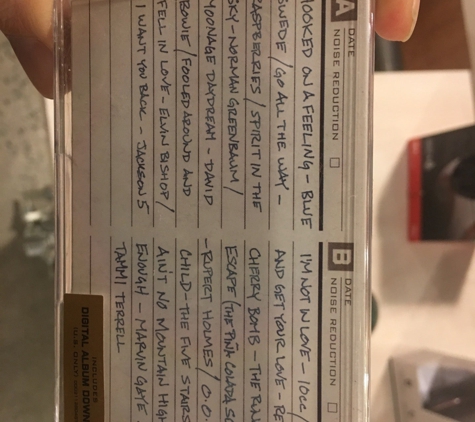 A
DATE
NOISE REDUCTION
HOOKED ON A FEELING - BLUE
SWEDE / GO ALL THE WAY -
RASPBERRIES / SPIRIT IN THE
SKY - NORMAN GREENBAUM /
MOONAGE DAYDREAM - DAVID
BOWIE / FOOLED AROUND AND
FELL IN LOVE - ELVIN BISHOP /
I WANT YOU BACK - JACKSON 5
B
DATE
NOISE REDUCTION
I'M NOT IN LOVE - 10cc /
AND GET YOUR LOVE - RE
CHERRY BOMB - THE RUN
ESCAPE (THE PIÑA COLADA SO
- RUPERT HOLMES / O.O.
CHILD - THE FIVE STAIRS
AIN'T NO MOUNTAIN HIGH
ENOUGH - MARVIN GAYE
TAMMI TERRELL
INCLUDES
DIGITAL ALBUM DOWN
(U.S. ONLY)